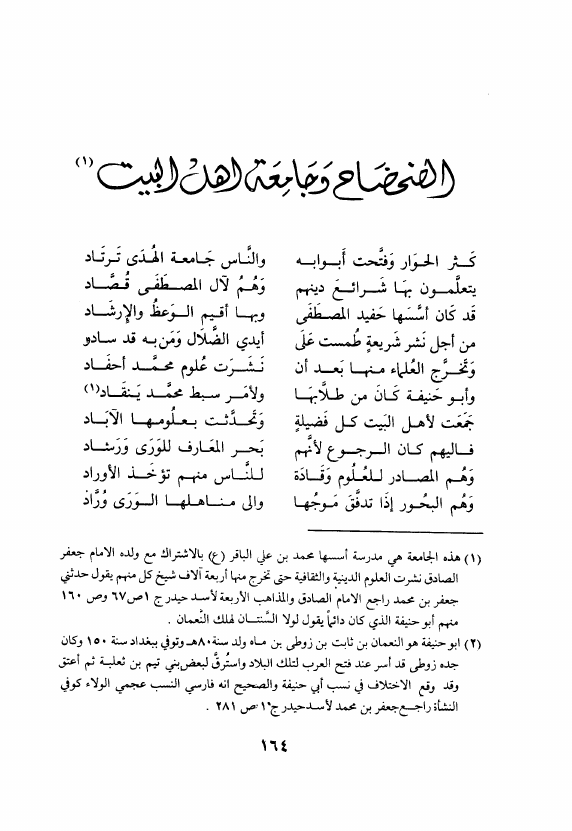 الضحضاح وجامعة اهل البيت (١)
كَـثر الحوَار وَفتَّحت أَبــوابــه والنَّـاس جَـامعـة الهُـدَى تَـرتَـاد
يتعلَّمــون بهَـا شَــرائــعَ دينهم وَهُـمُ لآل المصـطَفَـى قُـصَّـاد
قَد كَان أسَّسهَا حَفيد المصـطَفَى وبهـا أقـيم الـوَعظُ والإرشَـاد
من أجل نَشر شَريعةٍ طُمست عَلَى أيدي الضَّلَال وَمَن به قد سَـادو
وَتَخَـرَّج العُلَماء منهَـا بَعـد أن نَـشَـرَت عُلوم محَمَّـد أحفَـاد
وأبـو حَنيفة كَـانَ من طـلَّابهَـا ولأمَـر سبط محمَّـد يَـنقَـاد(١)
جَمَعَت لأهـل البَيت كـل فَضيلةٍ وَتَحَدَّثَـت بـعلُومهـا الآبَـاد
فـاليهم كـان الـرجـوع لأنَّهم بَحـر المعَـارف للوَرَى وَرَشَـاد
وَهُـم المصـادر للعُلُوم وَقَـادَة للنَّـاس منهـم تؤخَـذ الأوراد
وَهُم البحُـور إذَا تدفَّقَ مَـوجُهـا والى منَـاهلهـا الـوَرَى وُرَّاد
(١) هذه الجامعة هي مدرسة أسسها محمد بن علي الباقر (ع) بالاشتراك مع ولده الامام جعفر
الصادق نشرت العلوم الدينية والثقافية حتى تخرج منها أربعة آلاف شيخ كل منهم يقول حدثني
جعفر بن محمد راجع الامام الصادق والمذاهب الأربعة لأسـد حيدر ج ١ص٦٧ وص ١٦٠
منهم أبو حنيفة الذي كان دائماً يقول لولا السَّنتـان لهلك النُّعمان .
(٢) ابو حنيفة هو النعمان بن ثابت بن زوطى بن مـاه ولد سنة ٨٠هـ وتوفي ببغداد سنة ١٥٠ وكان
جده زوطى قد أسر عند فتح العرب لتلك البلاد واستُرقَّ لبعض بني تيم بن ثعلبـة ثم أعتق
وقد وقع الاختلاف في نسب أبي حنيفة والصحيح انه فارسي النسب عجمي الولاء كوفي
النشأة راجـع جعفر بن محمد لأسـد حيدر ج١ ص ٢٨١ .
١٦٤